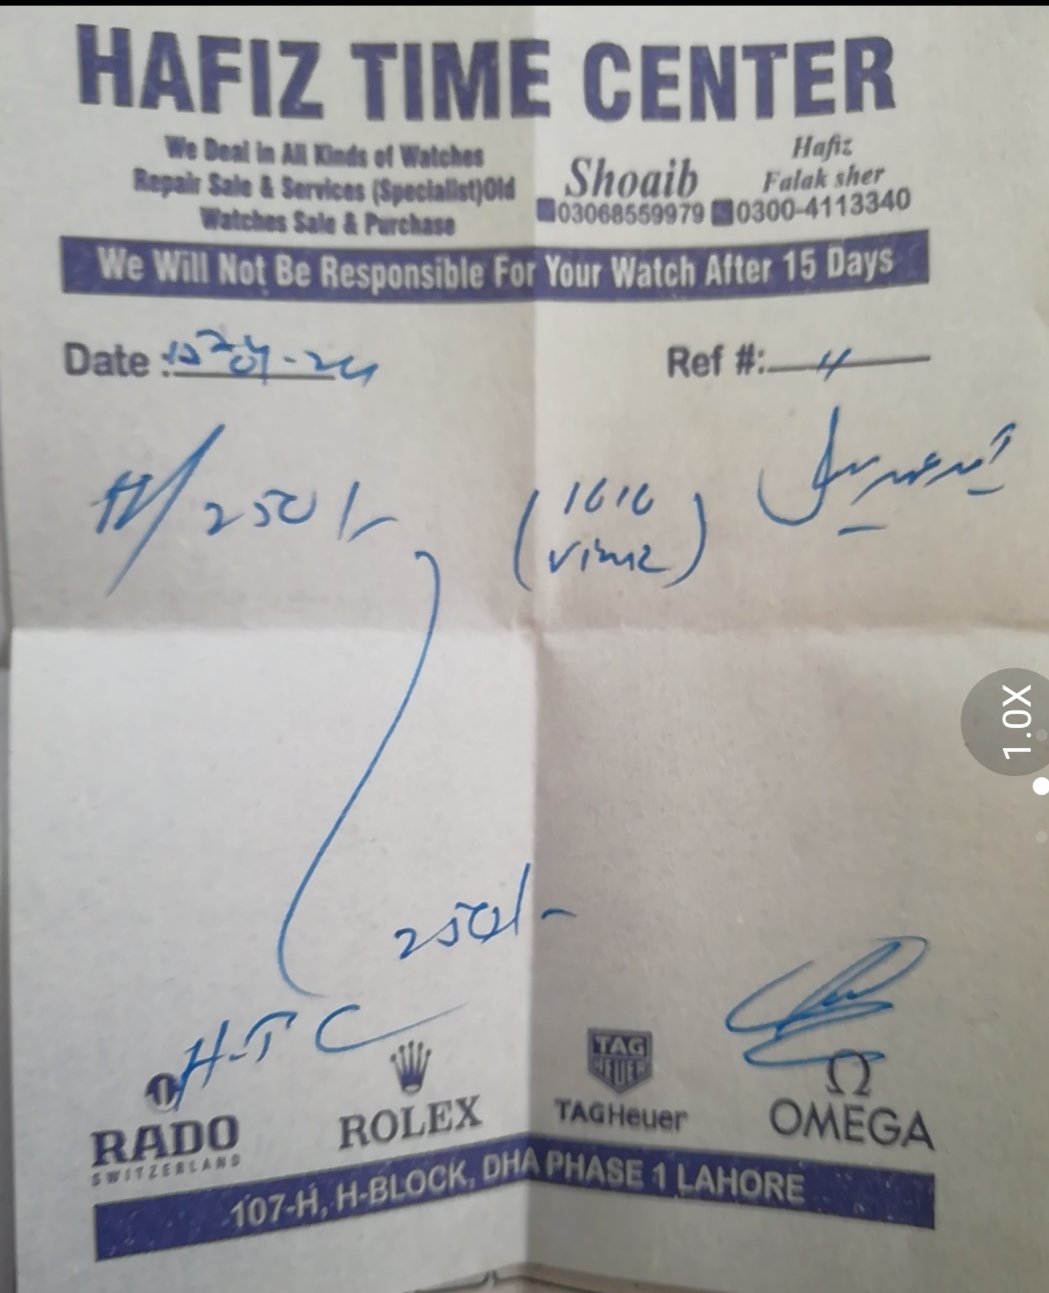 HAFIZ TIME CENTER
We Deal in All Kinds of Watches
Repair Sale & Services (Specialist)Old
Watches Sale & Purchase
Shoaib
03068559979
Hafiz
Falak sher
0300-4113340
We Will Not Be Responsible For Your Watch After 15 Days
Date :
Ref #:
250/-
(1616
)
250/-
H-T C
TAG
HEUER
RADO
SWITZERLAND
ROLEX
TAGHeuer
Ω
OMEGA
107-H, H-BLOCK, DHA PHASE 1 LAHORE
1.0X